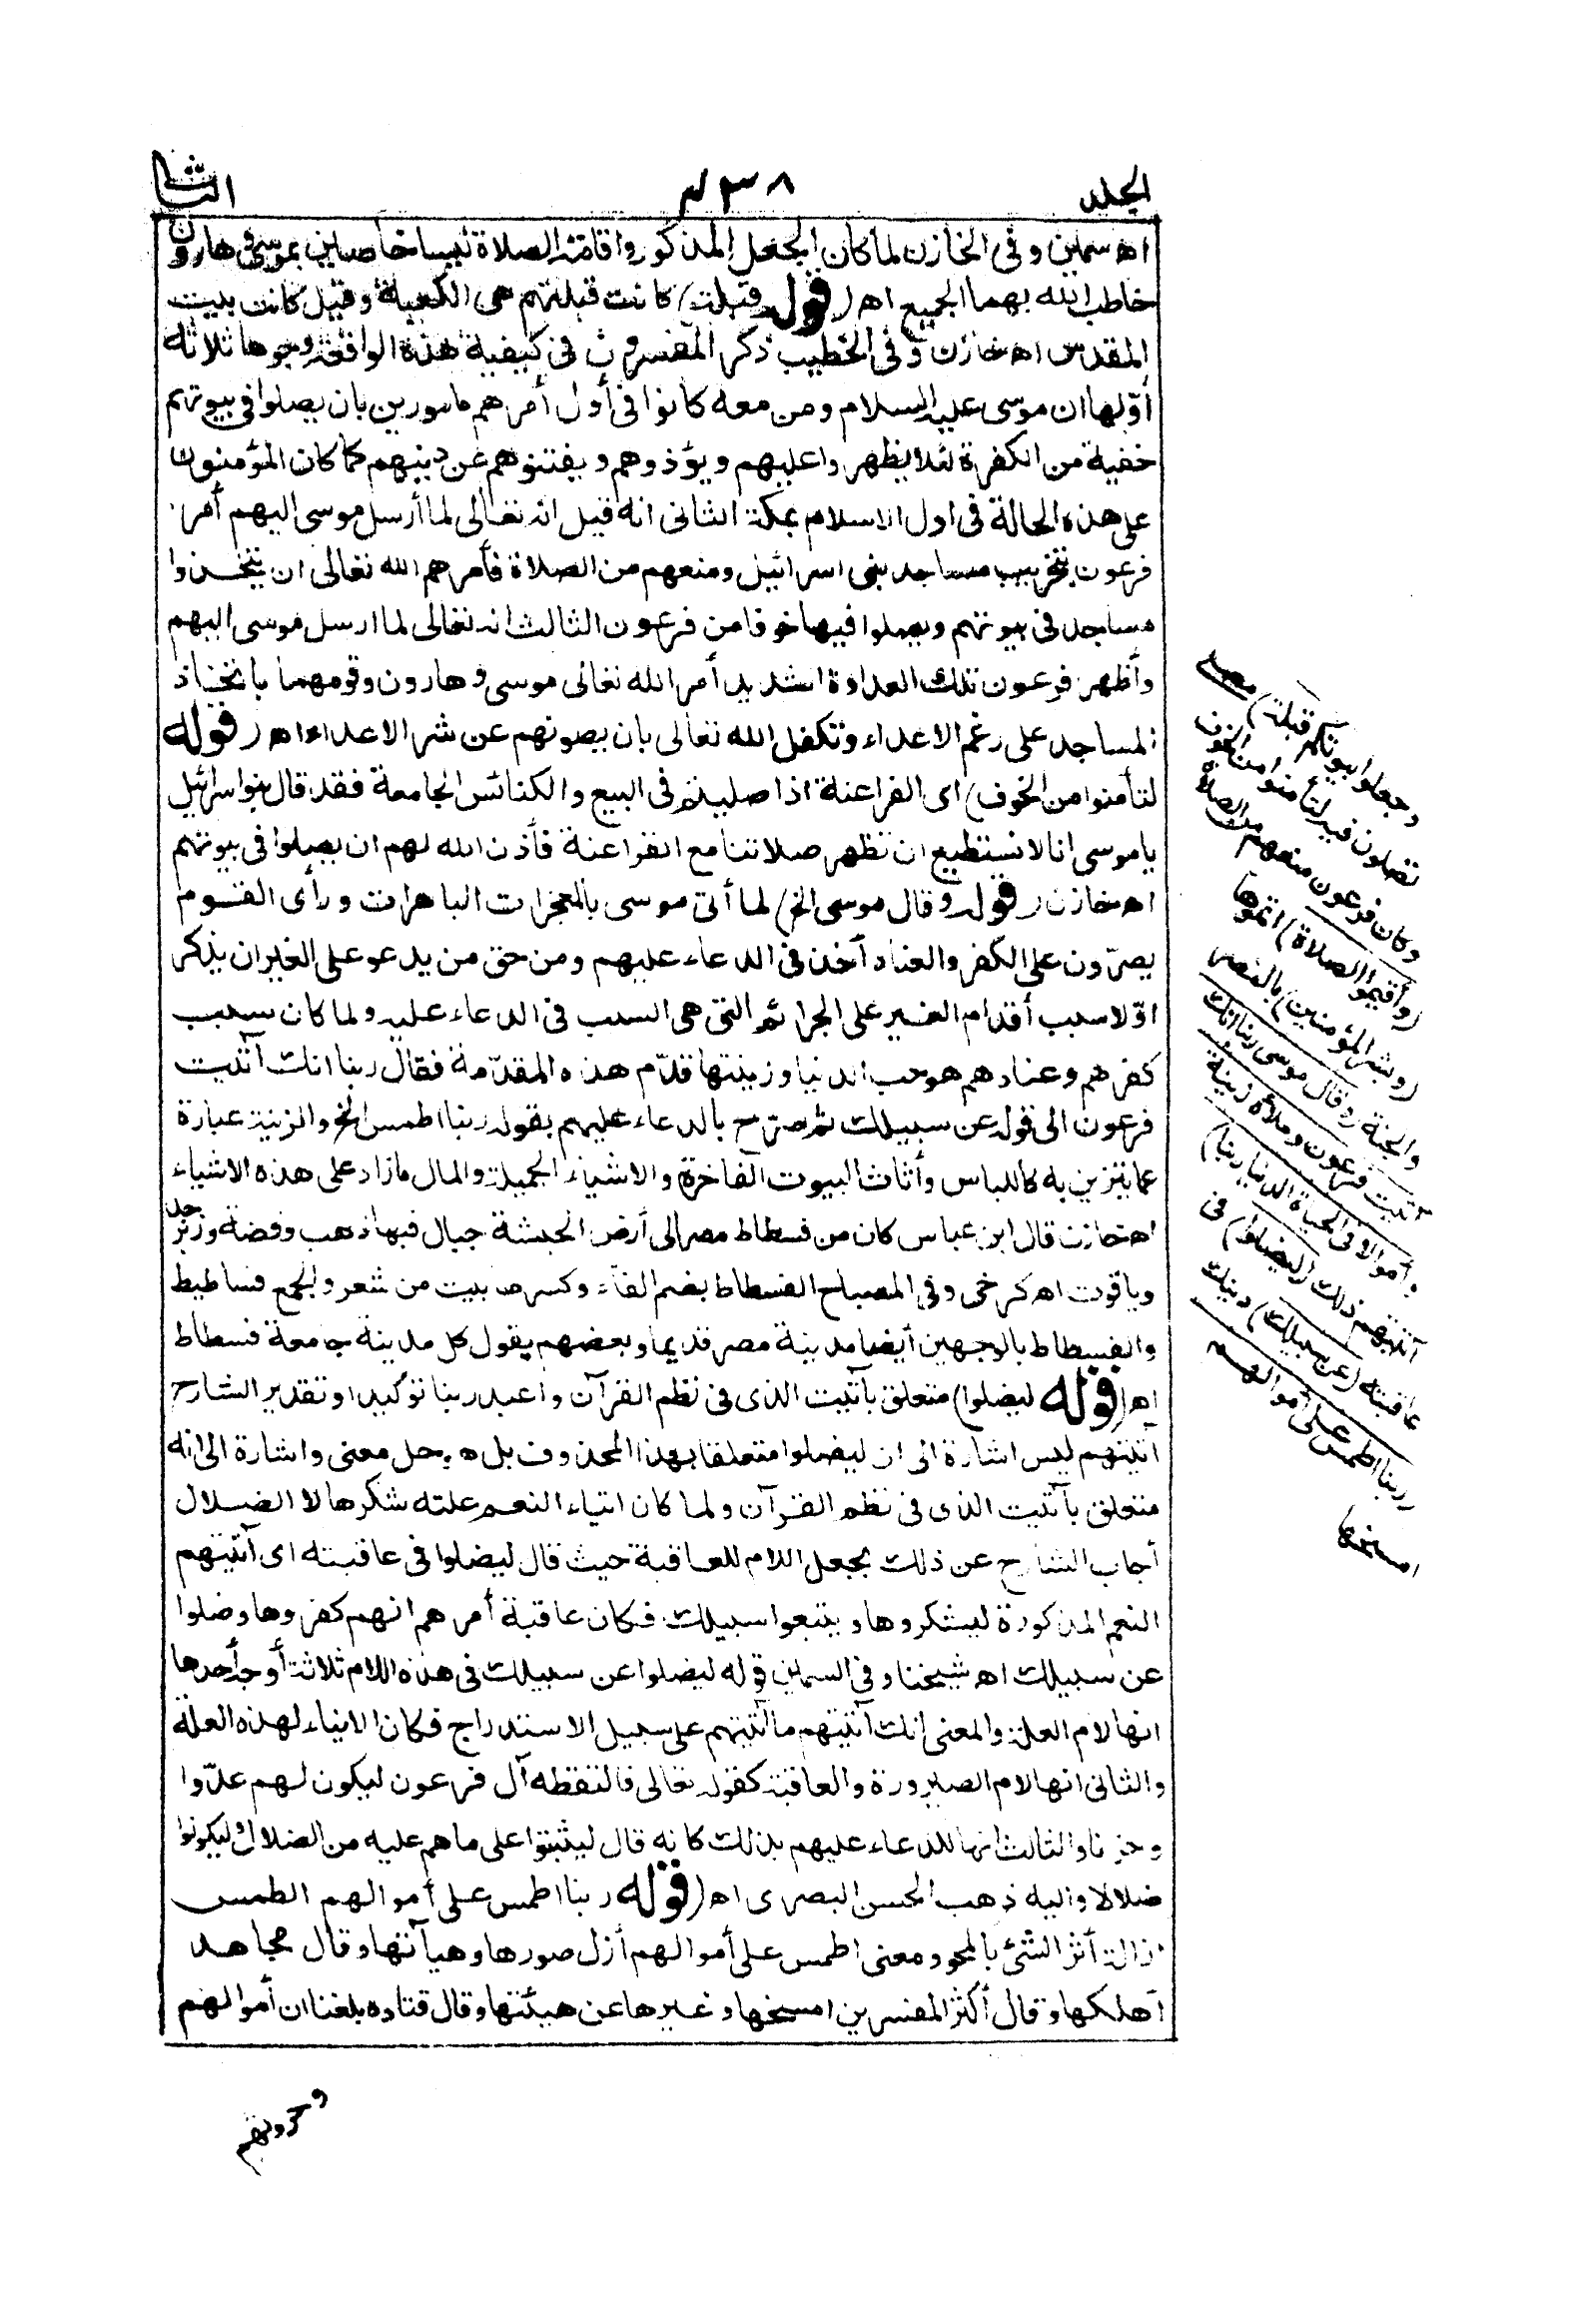 الجلد ٤٣٨ الثاني
اه سمين وفي الخازن لما كان الجعل المذكور واقامة الصلاة ليسا خاصين بموسى وهارون
خاطب الله بهما الجميع اه (قوله قبلة) كانت قبلتهم هي الكعبة وقيل كانت بيت
المقدس اه خازن وفي الخطيب ذكر المفسرون في كيفية هذه الواقعة وجوها ثلاثة
أوّلها ان موسى عليه السلام ومن معه كانوا في أول أمرهم مامورين بان يصلوا في بيوتهم
خفية من الكفرة لئلا يظهروا عليهم ويؤذوهم ويفتنوهم عن دينهم كما كان المؤمنون
على هذه الحالة في اول الاسلام بمكة الثاني انه قيل انه تعالى لما أرسل موسى اليهم أمر
فرعون بتخريب مساجد بني اسرائيل ومنعهم من الصلاة فأمرهم الله تعالى ان يتخذوا
مساجد في بيوتهم ويصلوا فيها خوفا من فرعون الثالث انه تعالى لما ارسل موسى اليهم
وأظهر فرعون تلك العداوة الشديد أمر الله تعالى موسى وهارون وقومهما باتخاذ
المساجد على رغم الاعداء وتكفل الله تعالى بان يصونهم عن شر الاعداء اه (قوله
لتأمنوا من الخوف) اى الفراعنة اذا صليتم في البيع والكنائس الجامعة فقد قال بنو اسرائيل
يا موسى انا لا نستطيع ان نظهر صلاتنا مع الفراعنة فأذن الله لهم ان يصلوا في بيوتهم
اه خازن (قوله وقال موسى الخ) لما أتى موسى بالمعجزات الباهرات ورأى القوم
يصرّون على الكفر والعناد أخذ في الدعاء عليهم ومن حق من يدعو على الغير ان يذكر
اوّلا سبب أقدام الغير على الجرائم التي هي السبب في الدعاء عليه ولما كان سبب
كفرهم وعنادهم هو حب الدنيا وزينتها قدّم هذه المقدّمة فقال ربنا انك آتيت
فرعون الى قوله عن سبيلك ثم صرّح بالدعاء عليهم بقوله ربنا اطمس الخ والزينة عبارة
عما يتزين به كاللباس وأثاث البيوت الفاخرة والاشياء الجميلة والمال ما زاد على هذه الاشياء
اه خازن قال ابن عباس كان من فسطاط مصر الى أرض الحبشة جبال فيها ذهب وفضة وزبرجد
وياقوت اه كرخى وفي المصباح الفسطاط بضم الفاء وكسرها بيت من شعر والجمع فساطيط
والفسطاط بالوجهين أيضا مدينة مصر قديما وبعضهم يقول كل مدينة جامعة فسطاط
اه (قوله ليضلوا) متعلق بآتيت الذى في نظم القرآن واعيد ربنا توكيدا وتقدير الشارح
آتيتهم ليس اشارة الى ان ليضلوا متعلقا بهذا المحذوف بل هو حل معنى واشارة الى انه
متعلق بآتيت الذى في نظم القرآن ولما كان ايتاء النعم علته شكرها لا الضلال
أجاب الشارح عن ذلك بجعل اللام للعاقبة حيث قال ليضلوا في عاقبته اى آتيتهم
النعم المذكورة ليشكروها ويتبعوا سبيلك فكان عاقبة أمرهم انهم كفروها وضلوا
عن سبيلك اه شيخنا وفي السمين قوله ليضلوا عن سبيلك في هذه اللام ثلاثة أوجه أحدها
انها لام العلة والمعنى انك آتيتهم ما آتيتهم على سبيل الاستدراج فكان الايتاء لهذه العلة
والثاني انها لام الصيرورة والعاقبة كقوله تعالى فالتقطه آل فرعون ليكون لهم عدّوا
وحزنا والثالث انها للدعاء عليهم بذلك كانه قال ليثبتوا على ما هم عليه من الضلال وليكونوا
ضلالا واليه ذهب الحسن البصرى اه (قوله ربنا اطمس على أموالهم الطمس
ازالة أثر الشئ بالمحو ومعنى اطمس على أموالهم أزل صورها وهيآتها وقال مجاهد
أهلكها وقال أكثر المفسرين امسخها وغيرها عن هيئتها وقال قتاده بلغنا ان أموالهم
وجعلوا بيوتكم قبلة) مصلى
تصلون فيه لتأمنوا من الخوف
وكان فرعون منعهم من الصلاة
(وأقيموا الصلاة) اتموها
(وبشر المؤمنين) بالنصر
والجنة (وقال موسى ربنا انك
آتيت فرعون وملأه زينة
وأموالا في الحياة الدنيا ربنا)
آتيتهم ذلك (ليضلوا) في
عاقبته (عن سبيلك) دينك
(ربنا اطمس على أموالهم
امسخها
وحروثهم